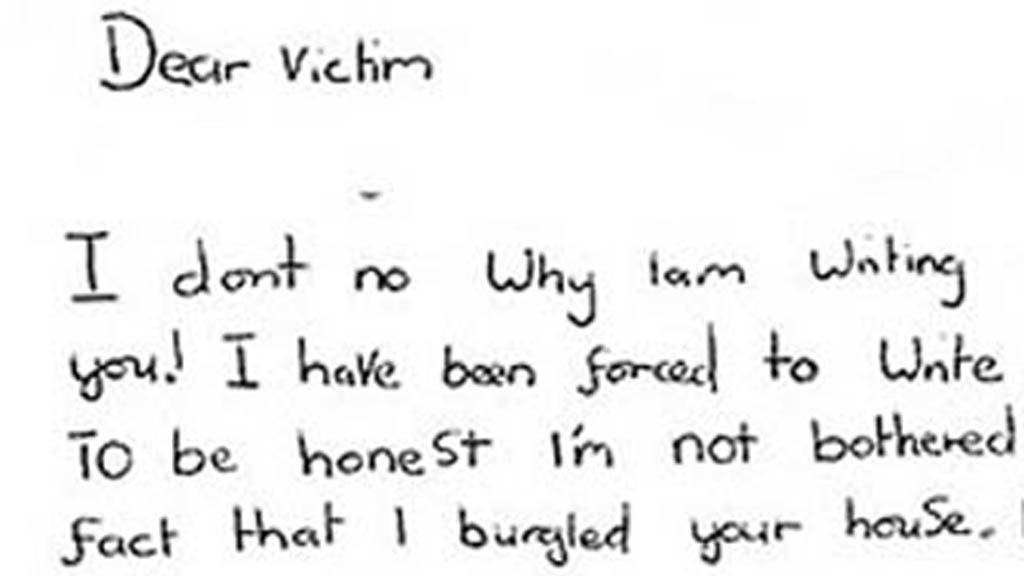 Dear Victim
I dont no Why Iam Writing
you! I have been forced to Write
To be honest I'm not bothered
fact that I burgled your house.